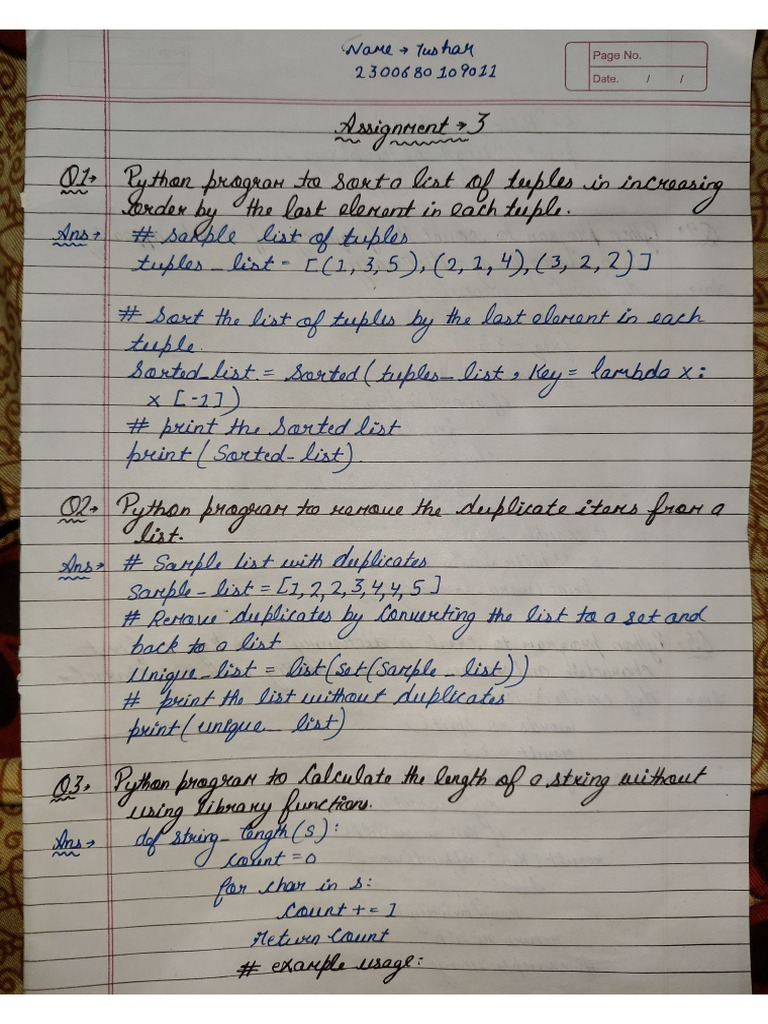 Name → Tushar
2300680109011
Page No.
Date. / /
Assignment → 3
Q1→ Python program to sort a list of tuples in increasing
order by the last element in each tuple.
Ans→ # sample list of tuples
tuples_list = [(1, 3, 5), (2, 1, 4), (3, 2, 2)]
# Sort the list of tuples by the last element in each
tuple.
Sorted_list = Sorted(tuples_list, Key = lambda x:
x [-1])
# print the Sorted list
print(Sorted_list).
Q2→ Python program to remove the duplicate items from a
list.
Ans→ # Sample list with duplicates
Sample_list = [1,2,2,3,4,4,5]
# Remove duplicates by Converting the list to a set and
back to a list
Unique_list = list(set(Sample_list))
# print the list without duplicates
print(unique_list)
Q3→ Python program to Calculate the length of a string without
using library function.
Ans→ def string_length(s):
Count = 0
for char in s:
Count += 1
Return Count
# example usage: